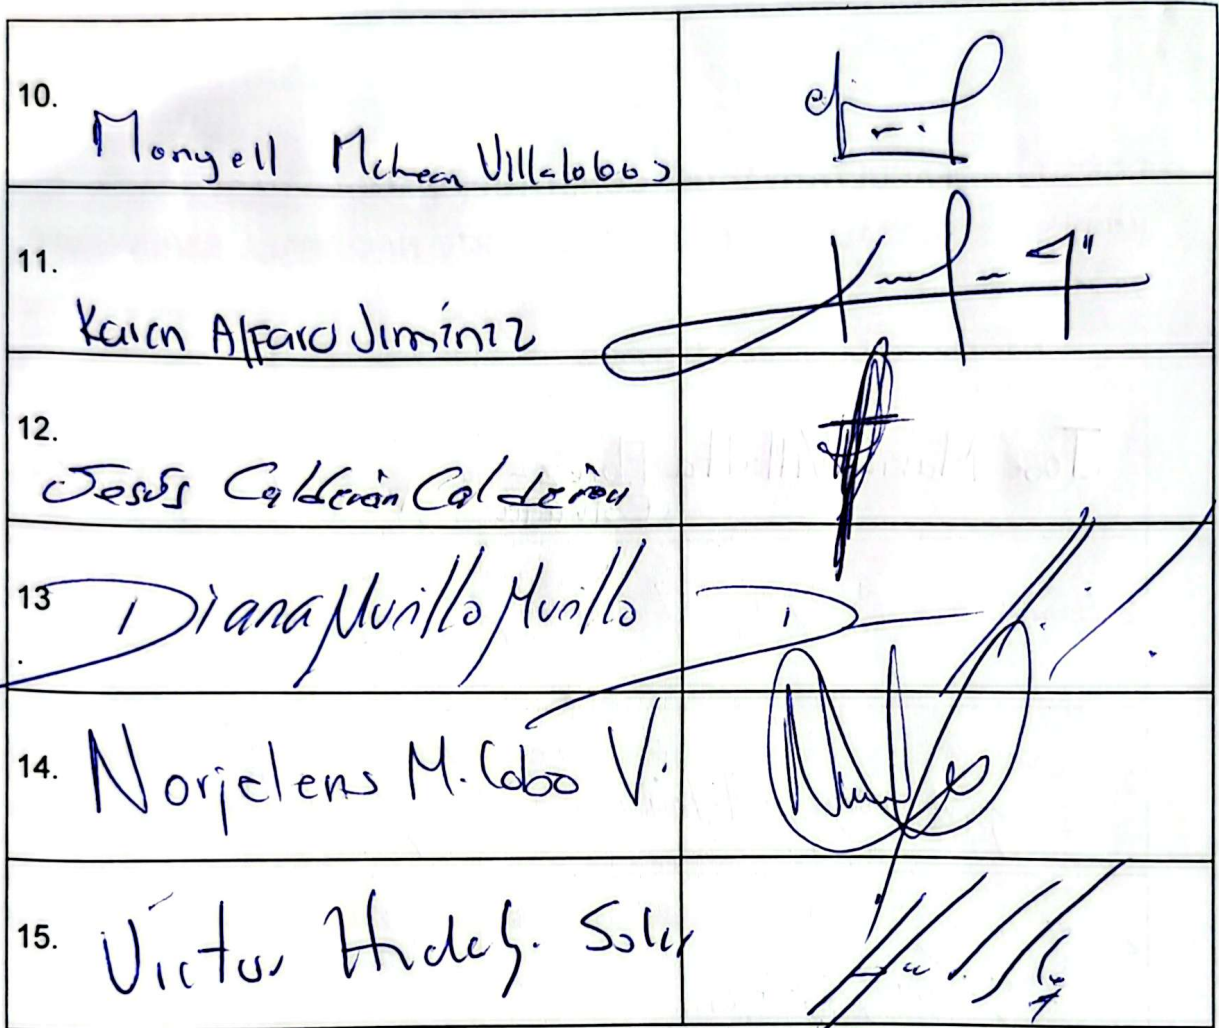 10. Monyell McLean Villalobos
11. Karen Alfaro Jiménez
12. Jesús Calderón Calderón
13 Diana Murillo Murillo
14. Norjelens M. Lobo V.
15. Victor Hidalg. Solis